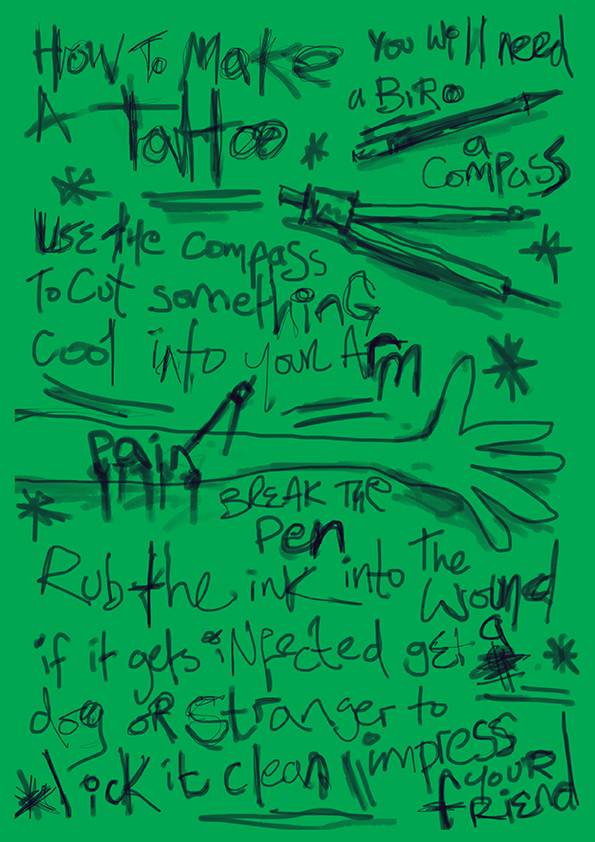 How To Make
A Tattoo
You will need
a BiRo
a
Compass
USE the Compass
To Cut somethinG
Cool into your ARM
Pain
BREAK THe
Pen
Rub the ink into The
Wound
if it gets iNfected get a
dog oR Stranger to
lick it clean impress
your
fRiend